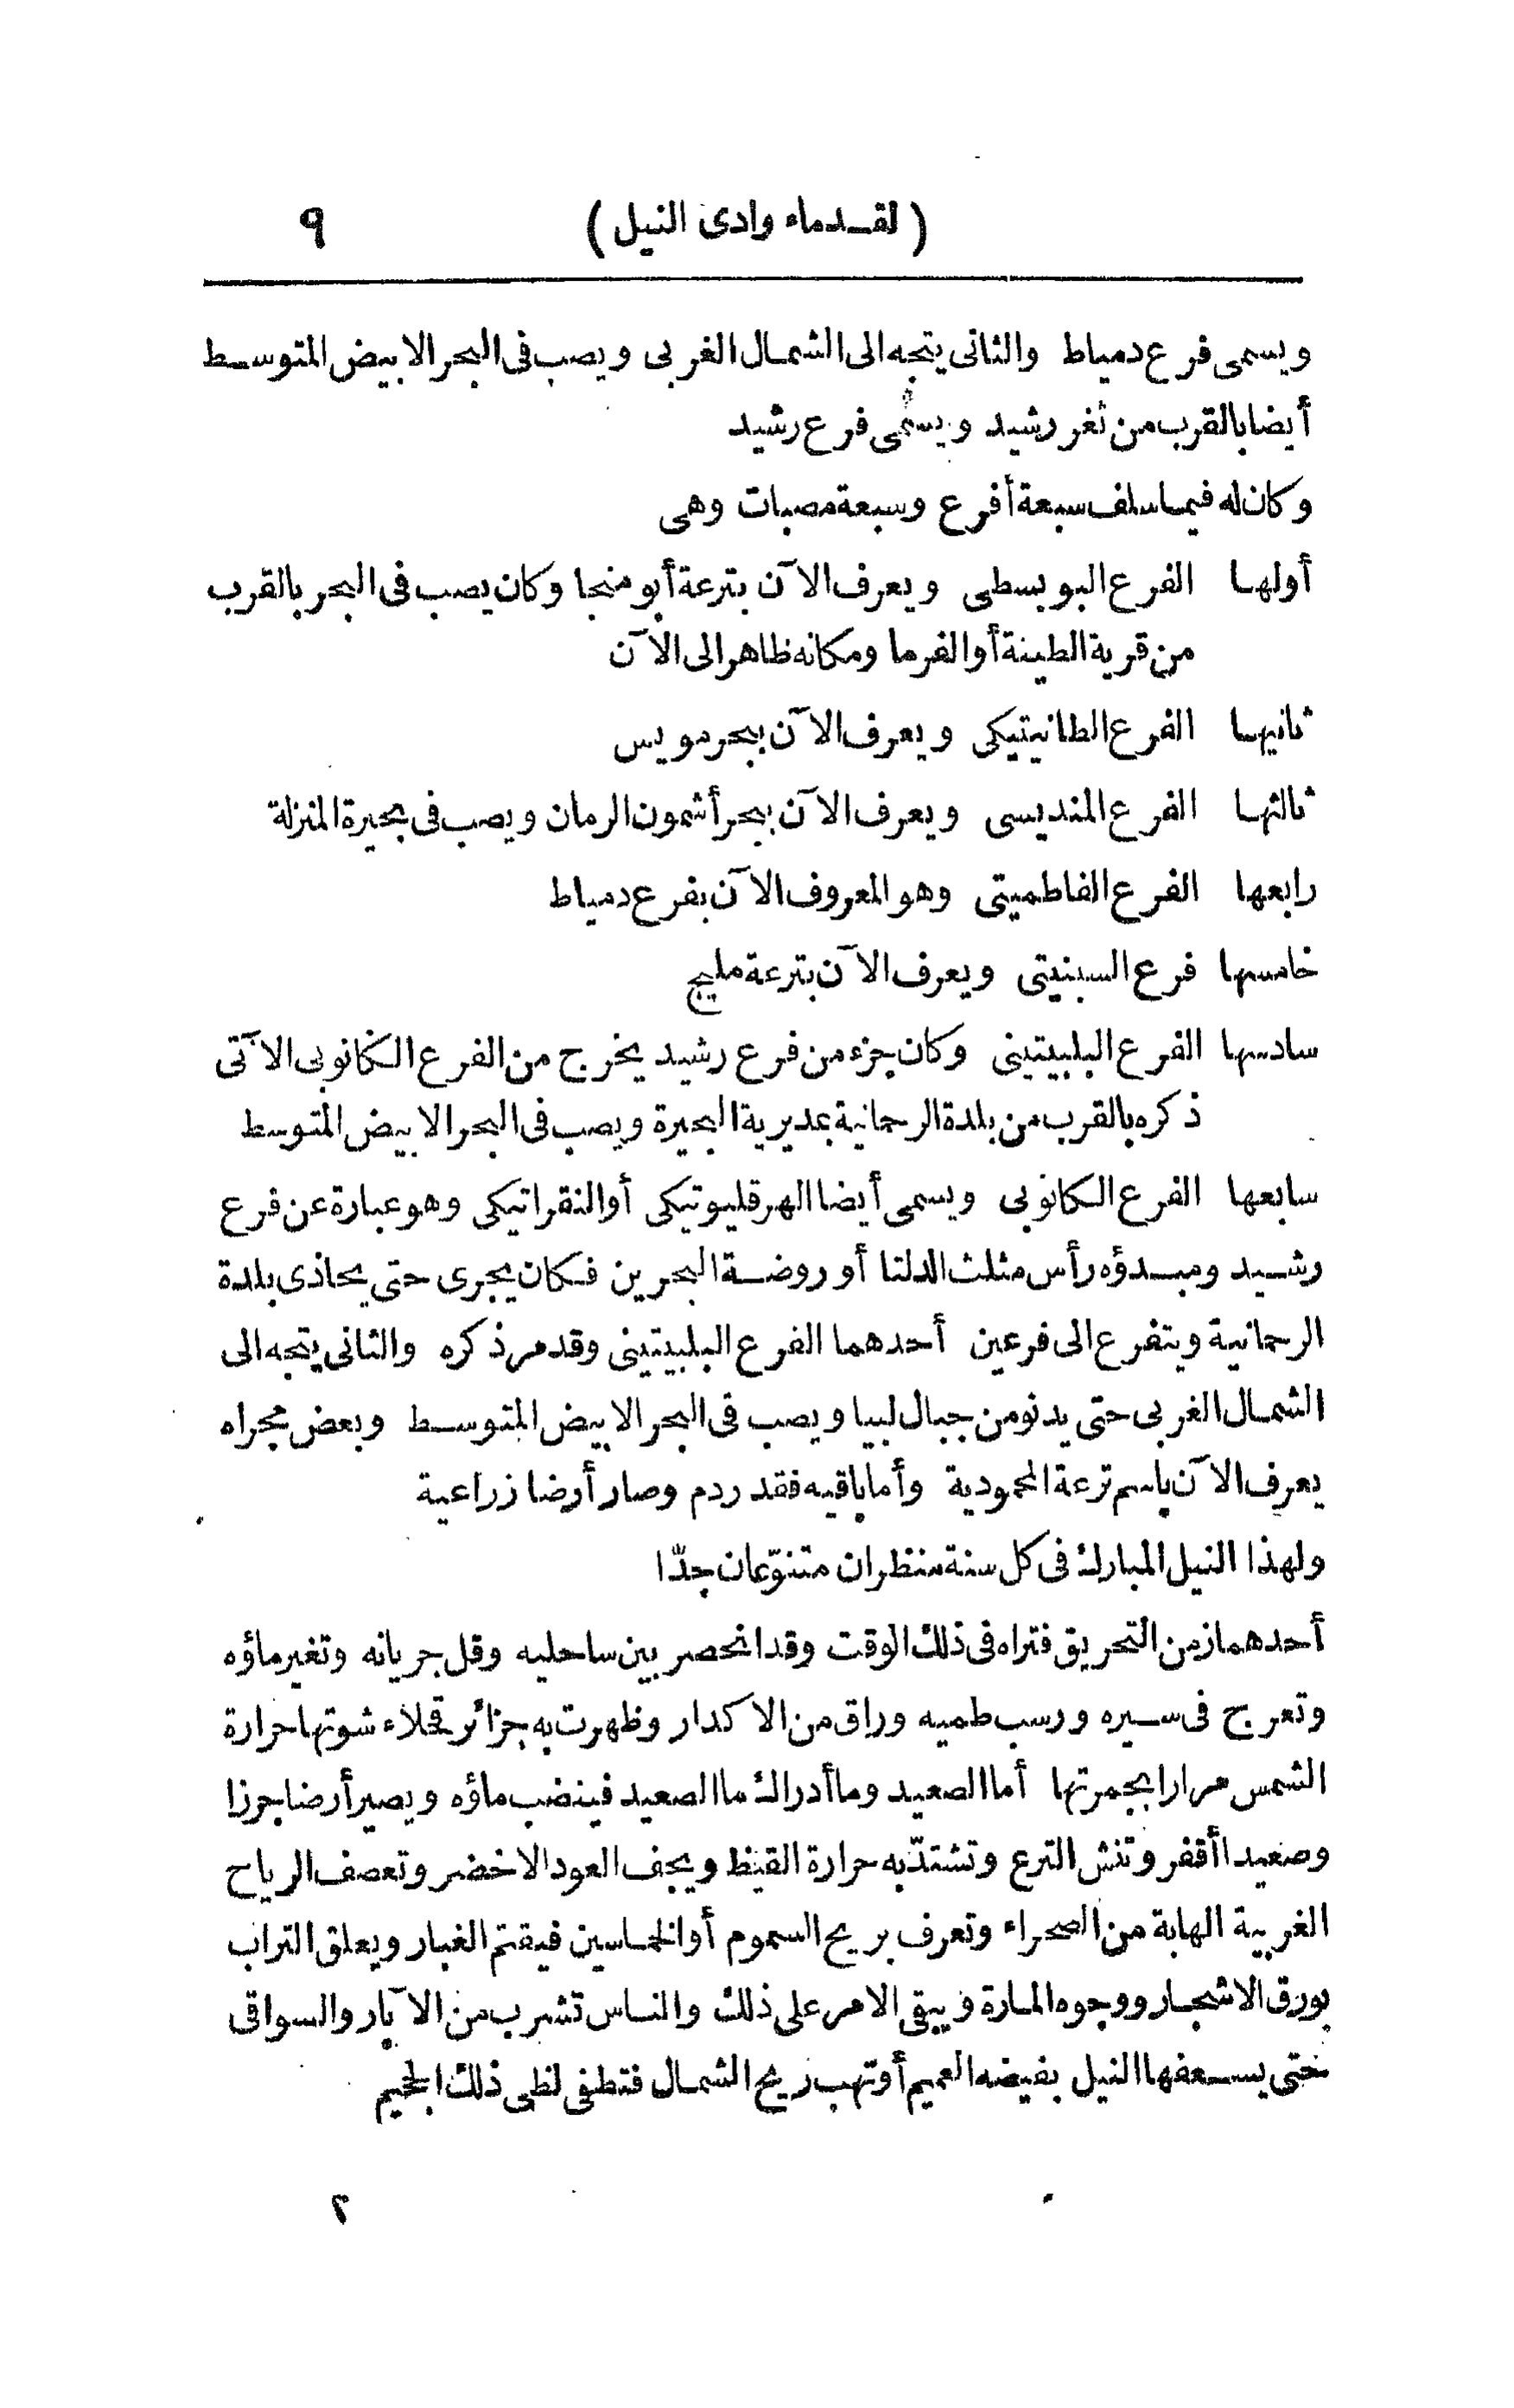 (لقدماء وادى النيل) ٩
ويسمى فرع دمياط والثانى يتجه الى الشمال الغربى ويصب فى البحر الابيض المتوسط
أيضا بالقرب من ثغر رشيد ويسمى فرع رشيد
وكان له فيما سلف سبعة أفرع وسبعة مصبات وهى
أولها الفرع البوبسطى ويعرف الآن بترعة أبو منجا وكان يصب فى البحر بالقرب
من قرية الطينة أو الفرما ومكانه ظاهر الى الآن
ثانيها الفرع الطانيتيكى ويعرف الآن ببحر مويس
ثالثها الفرع المنديسى ويعرف الآن ببحر أشمون الرمان ويصب فى بحيرة المنزلة
رابعها الفرع الفاطميتى وهو المعروف الآن بفرع دمياط
خامسها فرع السبنيتى ويعرف الآن بترعة مليج
سادسها الفرع البلبيتينى وكان جزء من فرع رشيد يخرج من الفرع الكانوبى الآتى
ذكره بالقرب من بلدة الرحمانية بمديرية البحيرة ويصب فى البحر الابيض المتوسط
سابعها الفرع الكانوبى ويسمى أيضا الهرقليوتيكى أو النقراتيكى وهو عبارة عن فرع
رشيد ومبدؤه رأس مثلث الدلتا أو روضة البحرين فكان يجرى حتى يحاذى بلدة
الرحمانية ويتفرع الى فرعين أحدهما الفرع البلبيتينى وقد مر ذكره والثانى يتجه الى
الشمال الغربى حتى يدنو من جبال لبيا ويصب فى البحر الابيض المتوسط وبعض مجراه
يعرف الآن باسم ترعة المحمودية وأما باقيه فقد ردم وصار أرضا زراعية
ولهذا النيل المبارك فى كل سنة منظران متنوّعان جدّا
أحدهما زمن التحريق فتراه فى ذلك الوقت وقد انحصر بين ساحليه وقل جريانه وتغير ماؤه
وتعرج فى سيره ورسب طميه وراق من الاكدار وظهرت به جزائر قحلاء شوتها حرارة
الشمس مرارا بجمرتها أما الصعيد وما أدراك ما الصعيد فينضب ماؤه ويصير أرضا جرزا
وصعيدا أقفر وتنش الترع وتشتدّ به حرارة القيظ ويجف العود الاخضر وتعصف الرياح
الغربية الهابة من الصحراء وتعرف بريح السموم أو الخماسين فيقتم الغبار ويعلق التراب
بورق الاشجار ووجوه المارة ويبقى الامر على ذلك والناس تشرب من الآبار والسواقى
حتى يسعفها النيل بفيضه العميم أو تهب ريح الشمال فتطفى لظى ذلك الجحيم
٢